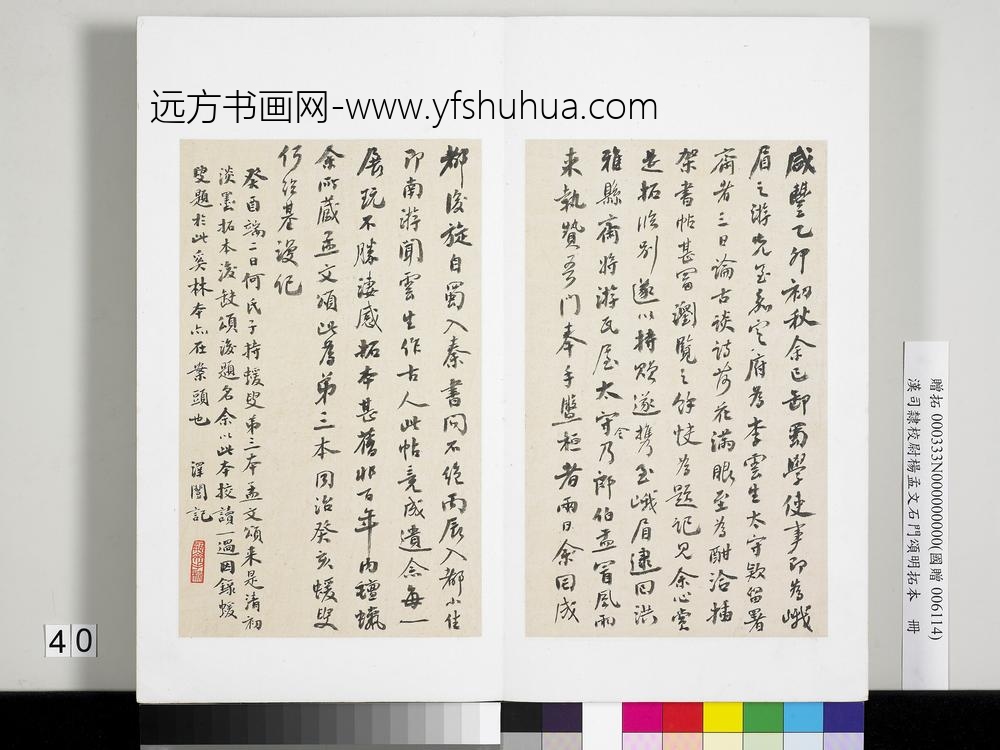 远方书画网-www.yfshuhua.com
咸豐乙卯初秋余已卸蜀學使事即為峨
眉之游先至嘉定府為李雲生太守欵留署
齋者三日論古談詩荷花滿眼至為酣洽插
架書帖甚富瀏覽之餘悉為題記見余心賞
是拓臨別遂以持贈遂攜至峨眉逮回洪
雅縣齋將游瓦屋太守令乃郎伯孟冒風雨
來執贄吾門奉手盤桓者兩日余回成
都後旋自蜀入秦書問不絕丙辰入都小住
即南游聞雲生作古人此帖竟成遺念每一
展玩不勝淒感拓本甚舊非百年內氈蠟
余所藏孟文頌此為第三本同治癸亥蝯叟
何紹基謾記
癸酉端二日何氏子持蝯叟第三本孟文頌來是清初
淡墨拓本後缺頌後題名余以此本挍讀一過因錄蝯
叟題於此奚林本亦在案頭也 澤闓記
贈拓 000333N000000000(國贈 006114)
漢司隸校尉楊孟文石門頌明拓本 冊
40